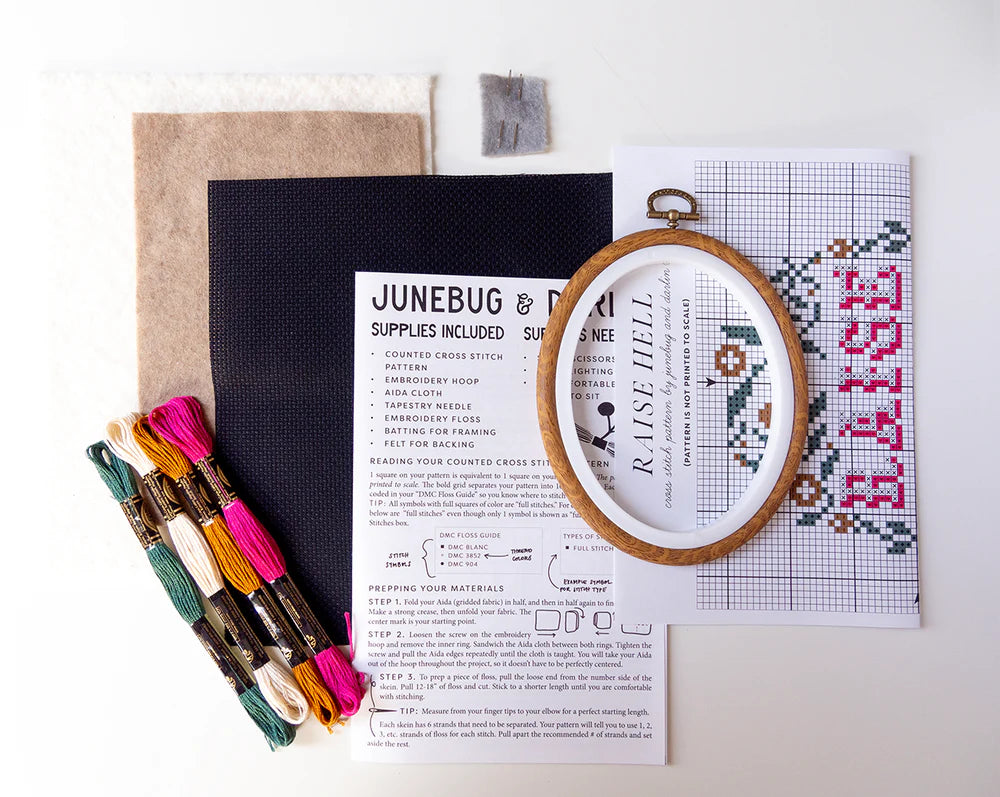 JUNEBUG &
SUPPLIES INCLUDED
• COUNTED CROSS STITCH
PATTERN
• EMBROIDERY HOOP
• AIDA CLOTH
• TAPESTRY NEEDLE
• EMBROIDERY FLOSS
• BATTING FOR FRAMING
• FELT FOR BACKING
READING YOUR COUNTED CROSS
1 square on your pattern is equivalent to 1 square on your
printed to scale. The bold grid separates your pattern into
coded in your "DMC Floss Guide" so you know where to stitch
TIP: All symbols with full squares of color are "full stitches."
below are "full stitches" even though only 1 symbol is shown as
Stitches box.
STITCH
SYMBOLS
DMC FLOSS GUIDE
■ DMC BLANC
DMC 3852
■ DMC 904
THREAD
COLORS
TYPES OF
■ FULL STITCH
EXAMPLE SYMBOL
FOR STITCH TYPE
PREPPING YOUR MATERIALS
STEP 1. Fold your Aida (gridded fabric) in half, and then in half again to
Make a strong crease, then unfold your fabric. The
center mark is your starting point.
STEP 2. Loosen the screw on the embroidery
hoop and remove the inner ring. Sandwich the Aida cloth between both rings. Tighten the
screw and pull the Aida edges repeatedly until the cloth is taught. You will take your Aida
out of the hoop throughout the project, so it doesn't have to be perfectly centered.
STEP 3. To prep a piece of floss, pull the loose end from the number side of the
skein. Pull 12-18" of floss and cut. Stick to a shorter length until you are comfortable
with stitching.
TIP: Measure from your finger tips to your elbow for a perfect starting length.
Each skein has 6 strands that need to be separated. Your pattern will tell you to use 1, 2,
3, etc. strands of floss for each stitch. Pull apart the recommended # of strands and set
aside the rest.
RAISE HELL
cross stitch pattern by junebug and darlin
(PATTERN IS NOT PRINTED TO SCALE)
RAISE